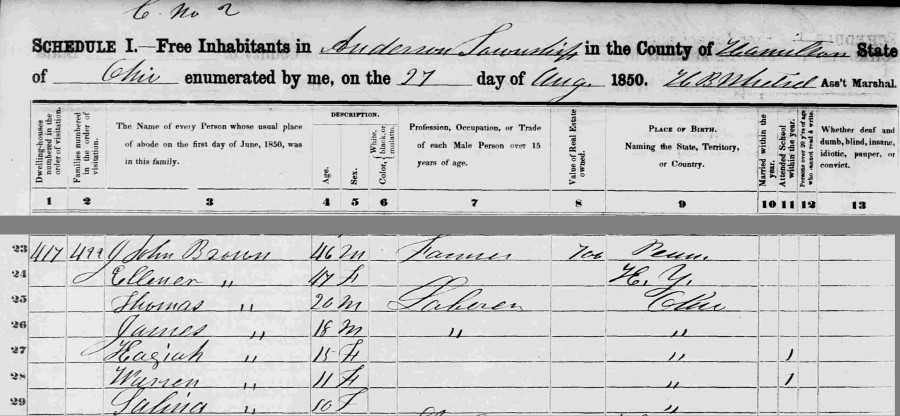 C. No 2
SCHEDULE I.—Free Inhabitants in Anderson Township in the County of Hamilton State
of Ohio enumerated by me, on the 27 day of Aug. 1850. Ass't Marshal.
Dwelling-houses numbered in the order of visitation.
Families numbered in the order of visitation.
The Name of every Person whose usual place of abode on the first day of June, 1850, was in this family.
DESCRIPTION.
Age.
Sex.
Color, { White, black, or mulatto.
Profession, Occupation, or Trade of each Male Person over 15 years of age.
Value of Real Estate owned.
PLACE OF BIRTH.
Naming the State, Territory, or Country.
Married within the year.
Attended School within the year.
Persons over 20 y'rs of age who cannot read & write.
Whether deaf and dumb, blind, insane, idiotic, pauper, or convict.
1 2 3 4 5 6 7 8 9 10 11 12 13
23 417 499 John Brown 46 M Farmer 700 Penn.
24 Ellener " 47 F N. Y.
25 Thomas " 20 M Laborer Ohio
26 James " 18 M " "
27 Haziah " 15 F " 1
28 Warren " 11 F " 1
29 Salina " 10 F "